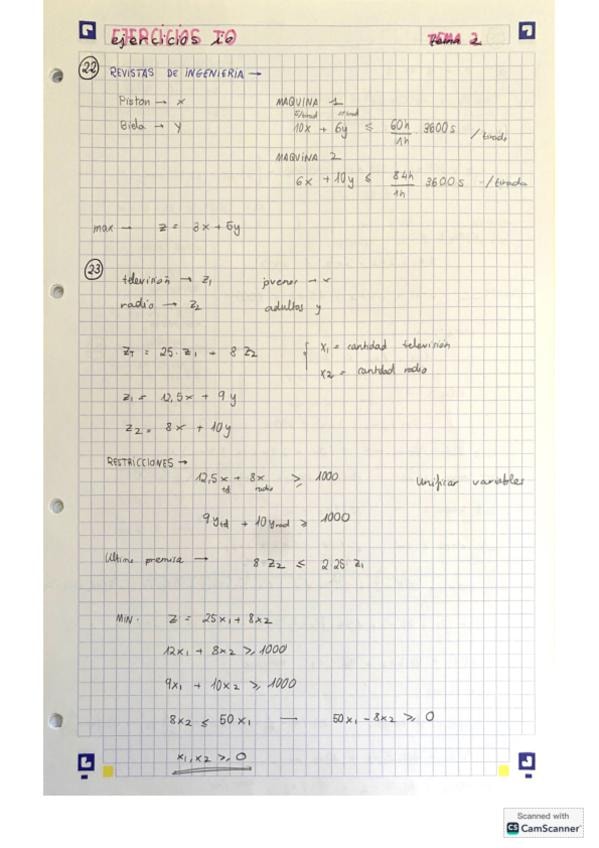 EJERCICIOS IO
ejercicios io
TEMA 2
22 REVISTAS DE INGENIERIA →
Piston → x
Biela → y
MAQUINA 1
10x + 6y ≤ 60h/1h 3600 s /tirada
MAQUINA 2
6x + 10y ≤ 84h/1h 3600 s /tirada
max → z = 3x + 5y
23
television → z1 jovenes → x
radio → z2 adultos y
ZT = 25 · z1 + 8 z2
x1 = cantidad televisión
x2 = cantidad radio
z1 = 12,5x + 9y
z2 = 8x + 10y
RESTRICCIONES →
12,5x + 8x ≥ 1000 Unificar variables
td radio
9ytd + 10yrad ≥ 1000
Ultima premisa → 8 z2 ≤ 2 25 z1
MIN. Z = 25x1 + 8x2
12x1 + 8x2 ≥ 1000
9x1 + 10x2 ≥ 1000
8x2 ≤ 50x1 — 50x1 - 8x2 ≥ 0
x1, x2 ≥ 0
Scanned with
CS CamScanner